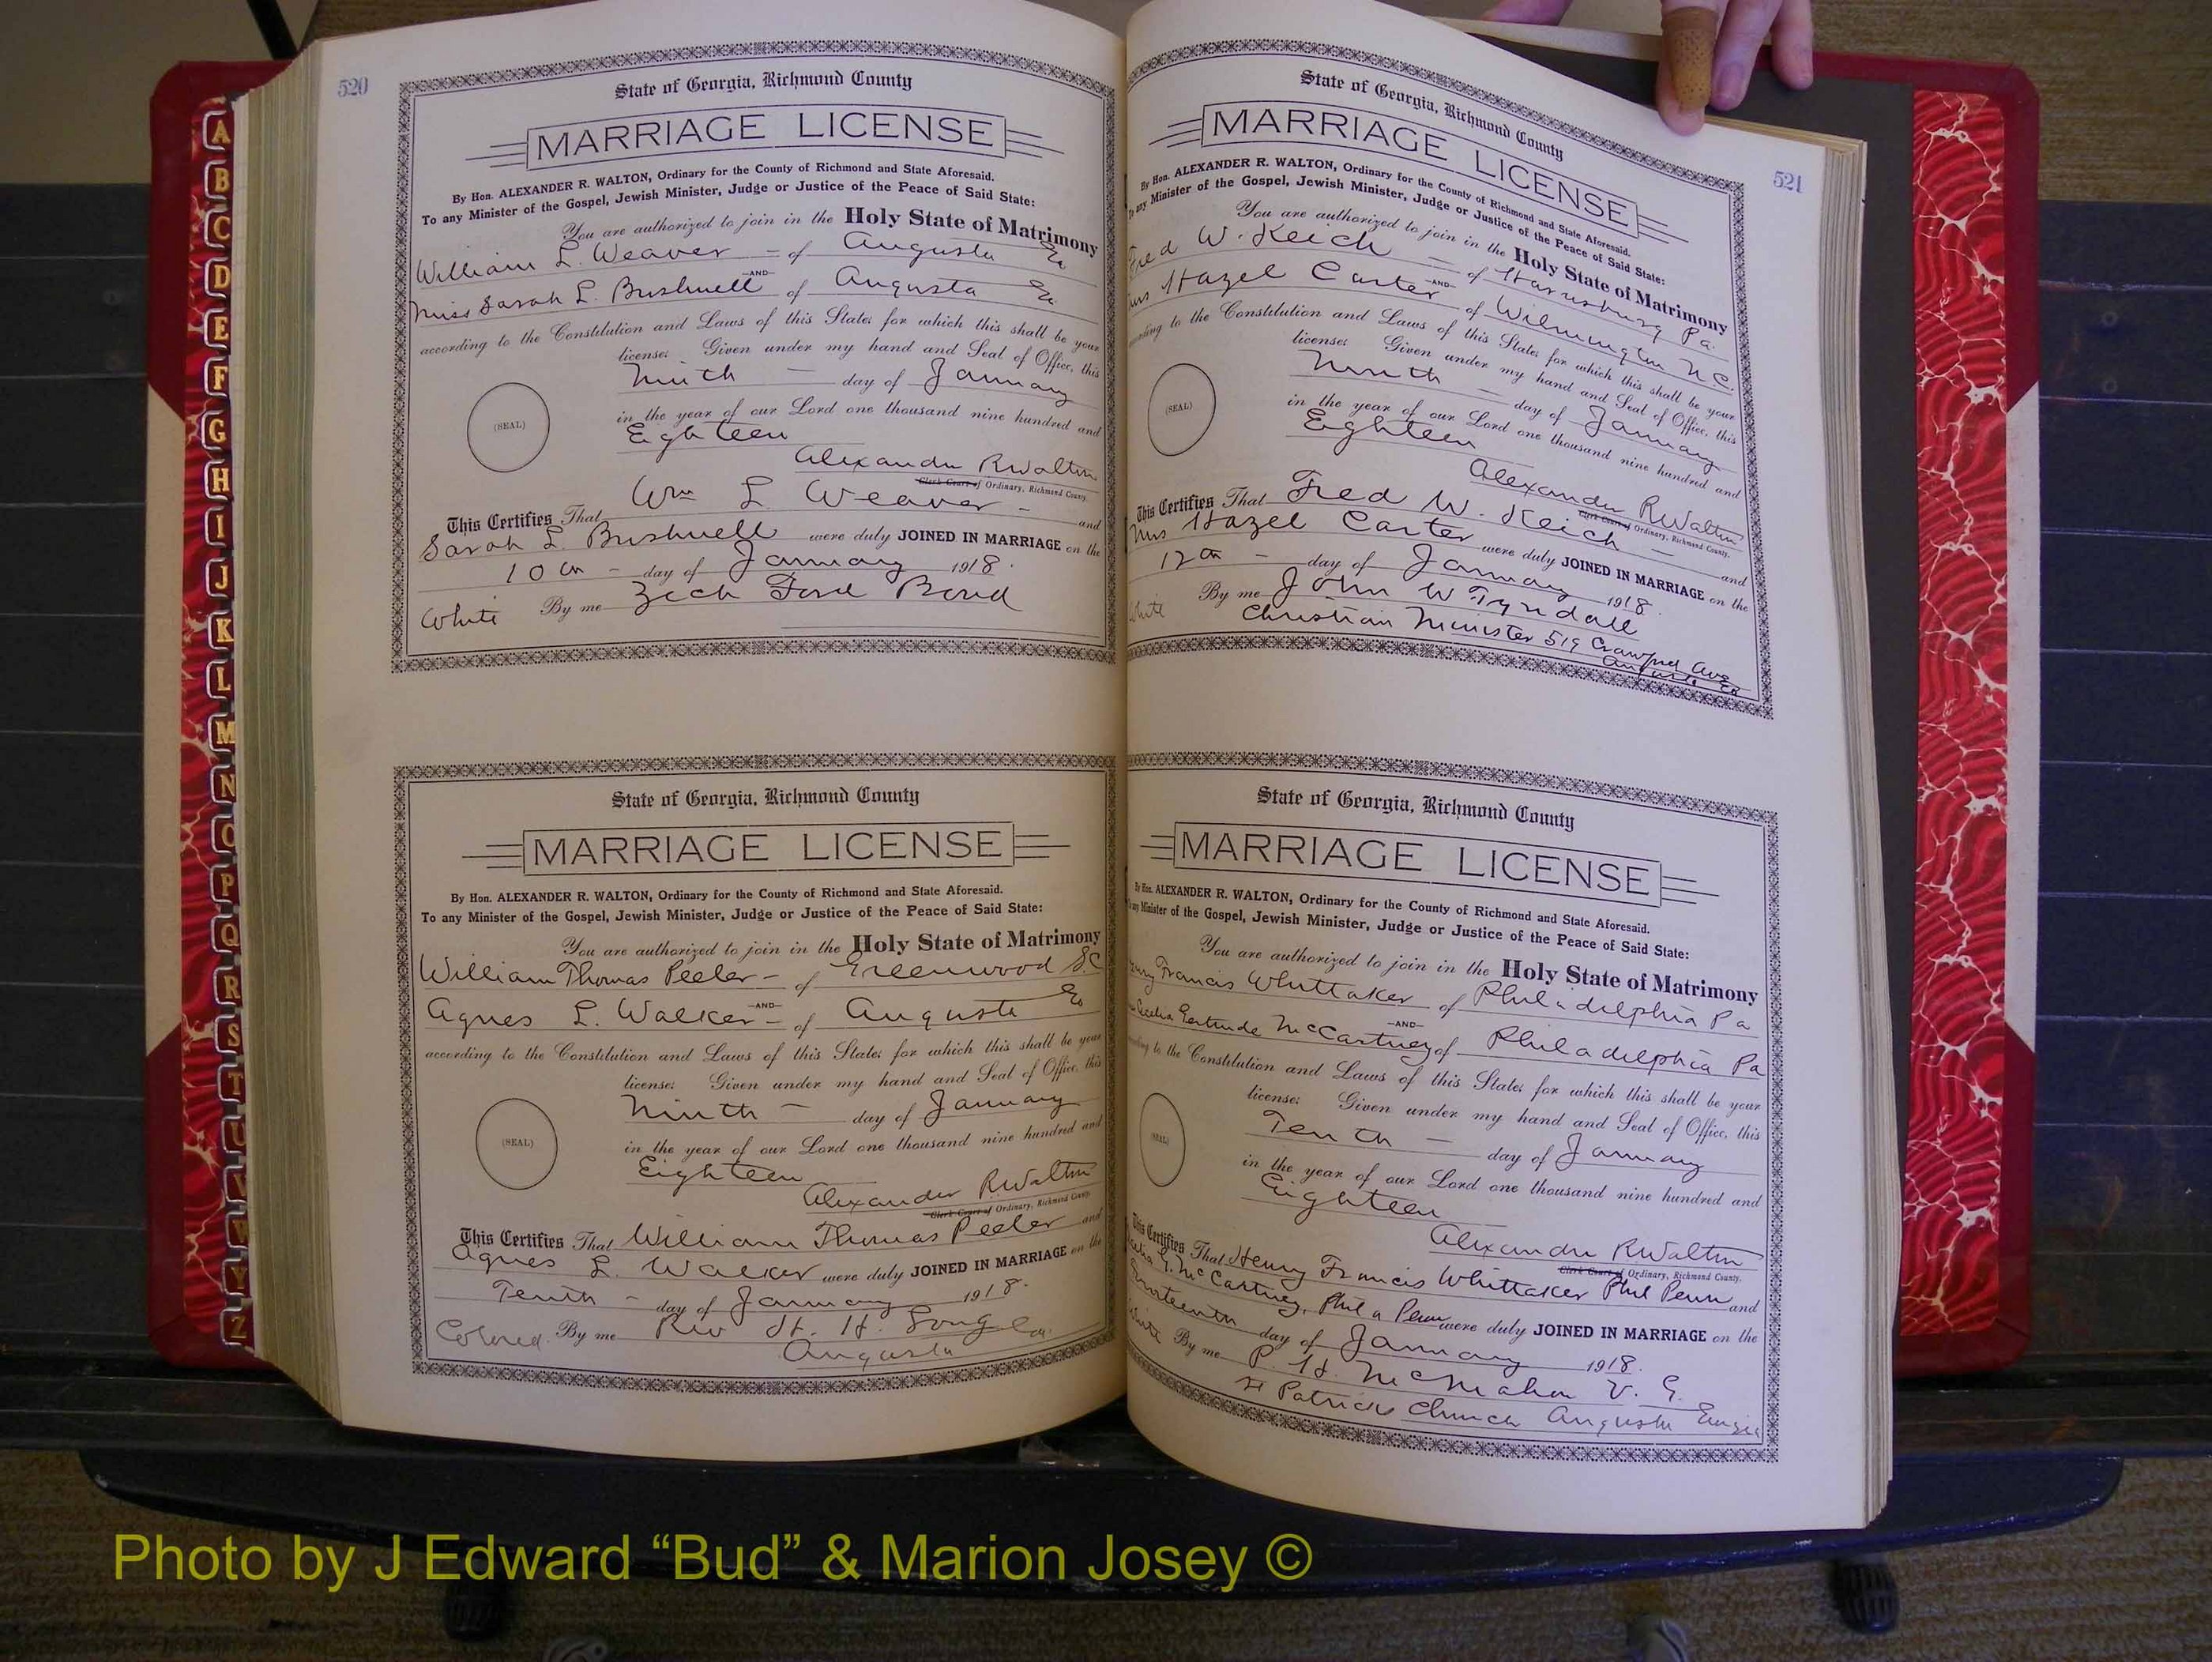 520
State of Georgia, Richmond County
MARRIAGE LICENSE
By Hon. ALEXANDER R. WALTON, Ordinary for the County of Richmond and State Aforesaid.
To any Minister of the Gospel, Jewish Minister, Judge or Justice of the Peace of Said State:
You are authorized to join in the Holy State of Matrimony
William L. Weaver = of Augusta Ga
AND
Miss Sarah L. Bushnell of Augusta Ga
according to the Constitution and Laws of this State; for which this shall be your
license: Given under my hand and Seal of Office, this
Ninth — day of January
in the year of our Lord one thousand nine hundred and
Eighteen
(SEAL)
Alexander R Walton
Clerk Court of Ordinary, Richmond County.
This Certifies That Wm L Weaver - and
Sarah L. Bushnell were duly JOINED IN MARRIAGE on the
10th - day of January 1918.
White By me Zach Ford Bond
State of Georgia, Richmond County
MARRIAGE LICENSE
By Hon. ALEXANDER R. WALTON, Ordinary for the County of Richmond and State Aforesaid.
To any Minister of the Gospel, Jewish Minister, Judge or Justice of the Peace of Said State:
You are authorized to join in the Holy State of Matrimony
William Thomas Peeler - of Greenwood S.C
AND
Agnes L. Walker - of Augusta Ga
according to the Constitution and Laws of this State; for which this shall be your
license: Given under my hand and Seal of Office, this
Ninth — day of January
in the year of our Lord one thousand nine hundred and
Eighteen
(SEAL)
Alexander R Walton
Clerk Court of Ordinary, Richmond County.
This Certifies That William Thomas Peeler and
Agnes L. Walker were duly JOINED IN MARRIAGE on the
Tenth - day of January 1918.
Colored. By me Rev St. H. Long
Augusta
521
State of Georgia, Richmond County
MARRIAGE LICENSE
By Hon. ALEXANDER R. WALTON, Ordinary for the County of Richmond and State Aforesaid.
To any Minister of the Gospel, Jewish Minister, Judge or Justice of the Peace of Said State:
You are authorized to join in the Holy State of Matrimony
Fred W. Keich — of Harrisburg Pa.
AND
Hazel Carter of Wilmington N.C.
according to the Constitution and Laws of this State; for which this shall be your
license: Given under my hand and Seal of Office, this
Ninth — day of January
in the year of our Lord one thousand nine hundred and
Eighteen
(SEAL)
Alexander R Walton
Clerk Court of Ordinary, Richmond County.
This Certifies That Fred W. Keich — and
Mrs Hazel Carter were duly JOINED IN MARRIAGE on the
12th - day of January 1918.
White By me John W Tyndall
Christian Minister 519 Crawford Ave
Augusta Ga
State of Georgia, Richmond County
MARRIAGE LICENSE
By Hon. ALEXANDER R. WALTON, Ordinary for the County of Richmond and State Aforesaid.
To any Minister of the Gospel, Jewish Minister, Judge or Justice of the Peace of Said State:
You are authorized to join in the Holy State of Matrimony
Francis Whittaker of Philadelphia Pa
AND
Cecelia Gertrude McCartney of Philadelphia Pa
to the Constitution and Laws of this State; for which this shall be your
license: Given under my hand and Seal of Office, this
Tenth — day of January
in the year of our Lord one thousand nine hundred and
Eighteen
(SEAL)
Alexander R Walton
Clerk Court of Ordinary, Richmond County.
This Certifies That Henry Francis Whittaker Phil Penn and
G. McCartney, Phila Penn were duly JOINED IN MARRIAGE on the
day of January 1918.
White By me P. H. McMahon V. G.
St Patricks Church Augusta Georgia
A
B
C
D
E
F
G
H
I
J
K
L
M
N
O
P
Q
R
S
T
U
V
W
Y
Z
Photo by J Edward “Bud” & Marion Josey ©